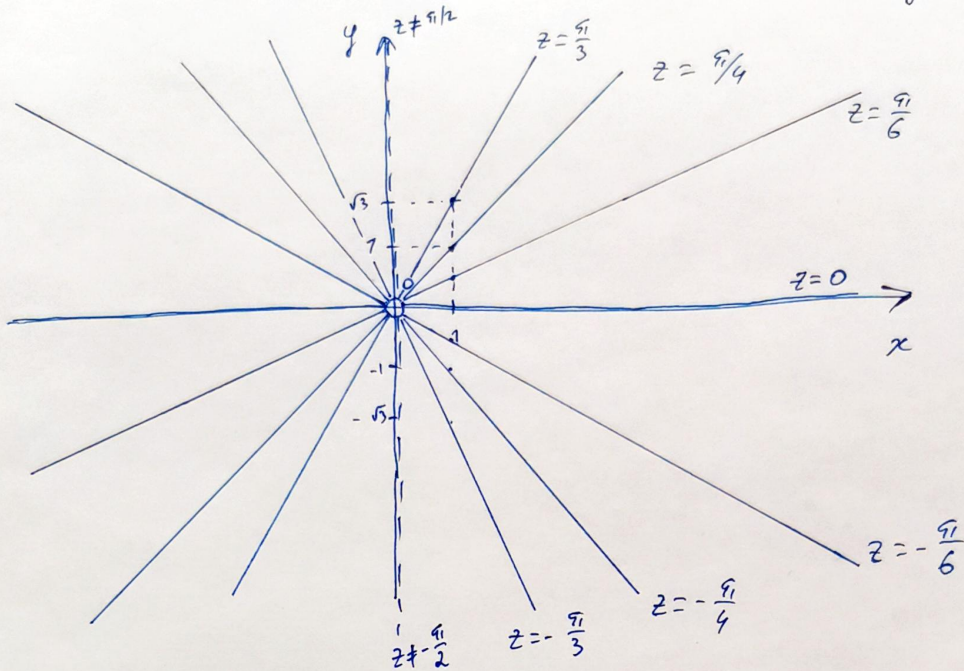 y
z ≠ π/2
z = π/3
z = π/4
z = π/6
√3
1
0
z = 0
1
x
-1
-√3
z = -π/6
z = -π/4
z = -π/3
z ≠ -π/2